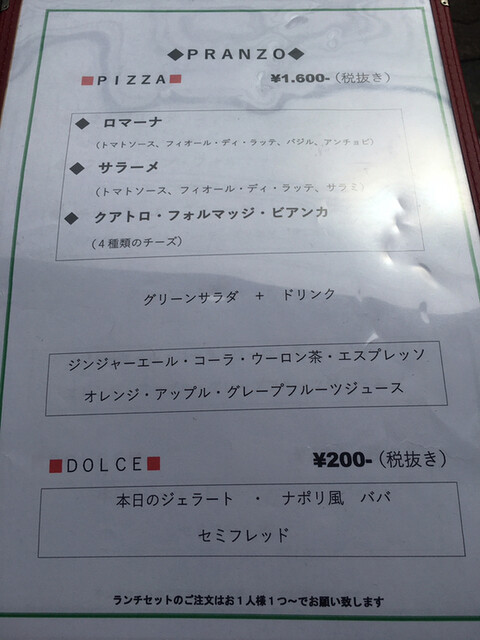 ◆PRANZO◆
■PIZZA■ ¥1.600-（税抜き）
◆ ロマーナ
（トマトソース、フィオール・ディ・ラッテ、バジル、アンチョビ）
◆ サラーメ
（トマトソース、フィオール・ディ・ラッテ、サラミ）
◆ クアトロ・フォルマッジ・ビアンカ
（４種類のチーズ）
グリーンサラダ ＋ ドリンク
ジンジャーエール・コーラ・ウーロン茶・エスプレッソ
オレンジ・アップル・グレープフルーツジュース
■DOLCE■ ¥200-（税抜き）
本日のジェラート ・ ナポリ風 ババ
セミフレッド
ランチセットのご注文はお１人様１つ～でお願い致します